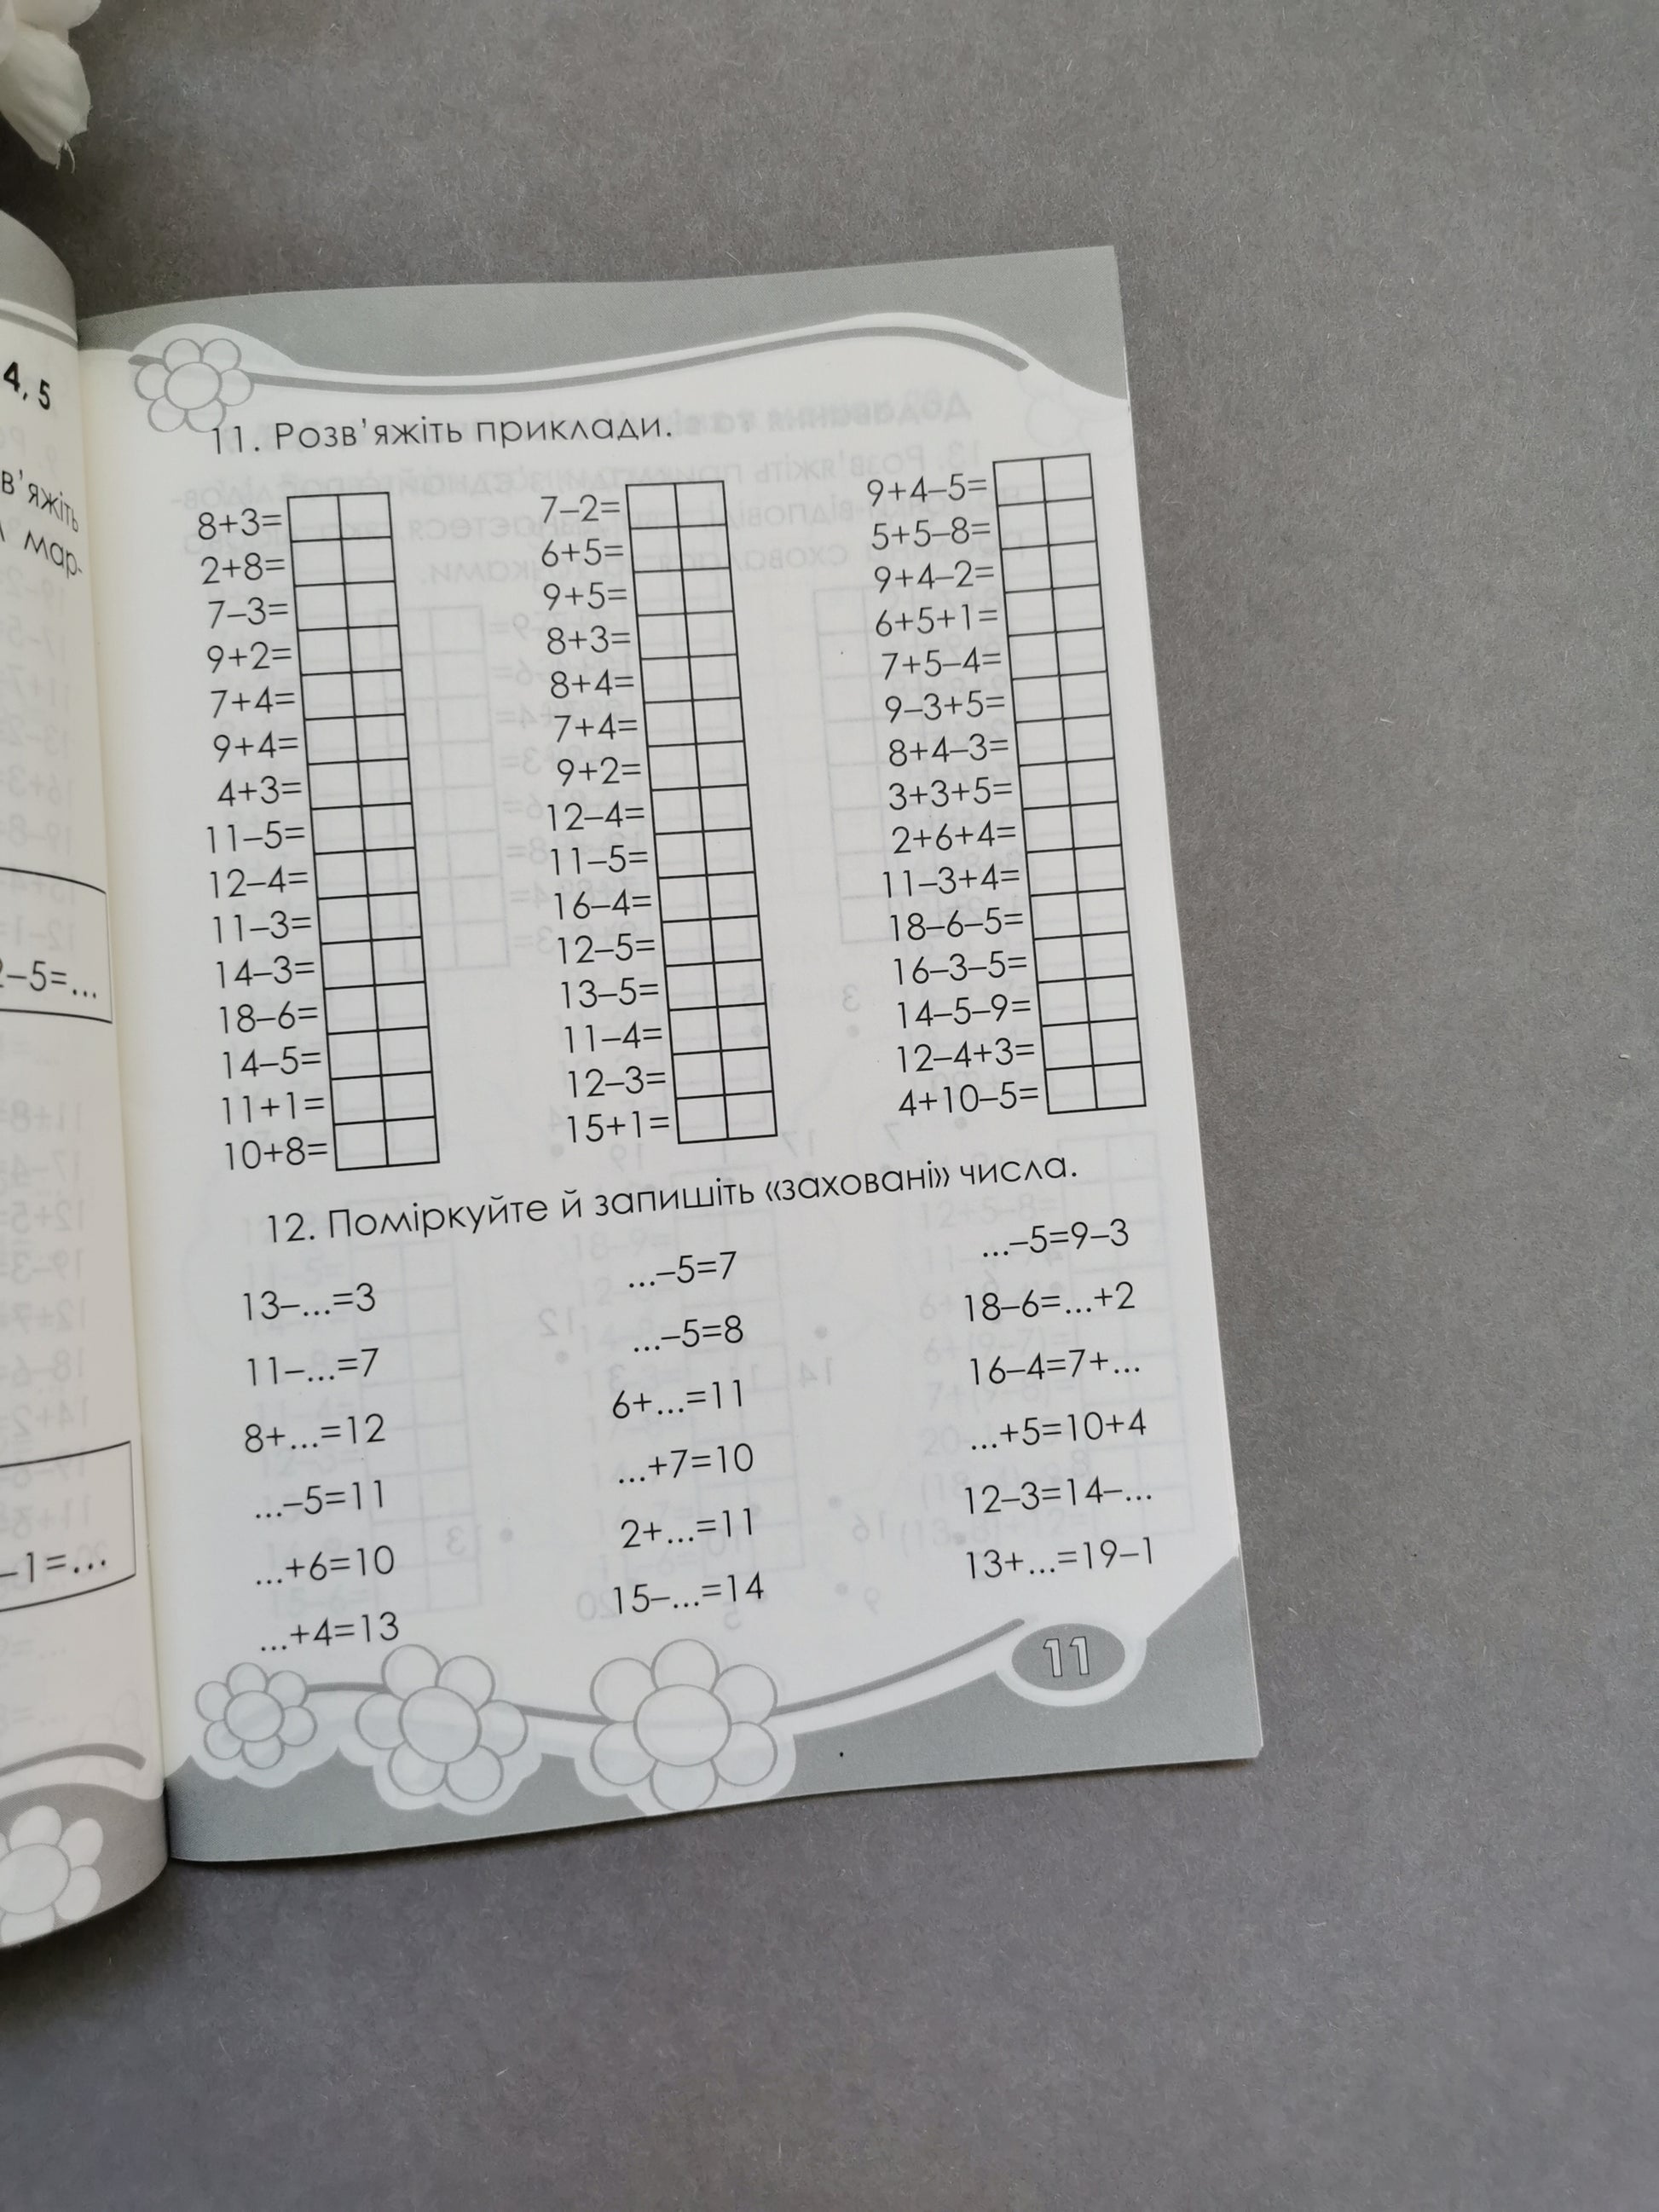 4, 5
в'яжіть
мар-
2–5=...
–1=...
11. Розв'яжіть приклади.
8+3=
2+8=
7–3=
9+2=
7+4=
9+4=
4+3=
11–5=
12–4=
11–3=
14–3=
18–6=
14–5=
11+1=
10+8=
7–2=
6+5=
9+5=
8+3=
8+4=
7+4=
9+2=
12–4=
11–5=
16–4=
12–5=
13–5=
11–4=
12–3=
15+1=
9+4–5=
5+5–8=
9+4–2=
6+5+1=
7+5–4=
9–3+5=
8+4–3=
3+3+5=
2+6+4=
11–3+4=
18–6–5=
16–3–5=
14–5–9=
12–4+3=
4+10–5=
12. Поміркуйте й запишіть «заховані» числа.
13–...=3
11–...=7
8+...=12
...–5=11
...+6=10
...+4=13
...–5=7
...–5=8
6+...=11
...+7=10
2+...=11
15–...=14
...–5=9–3
18–6=...+2
16–4=7+...
...+5=10+4
12–3=14–...
13+...=19–1
11